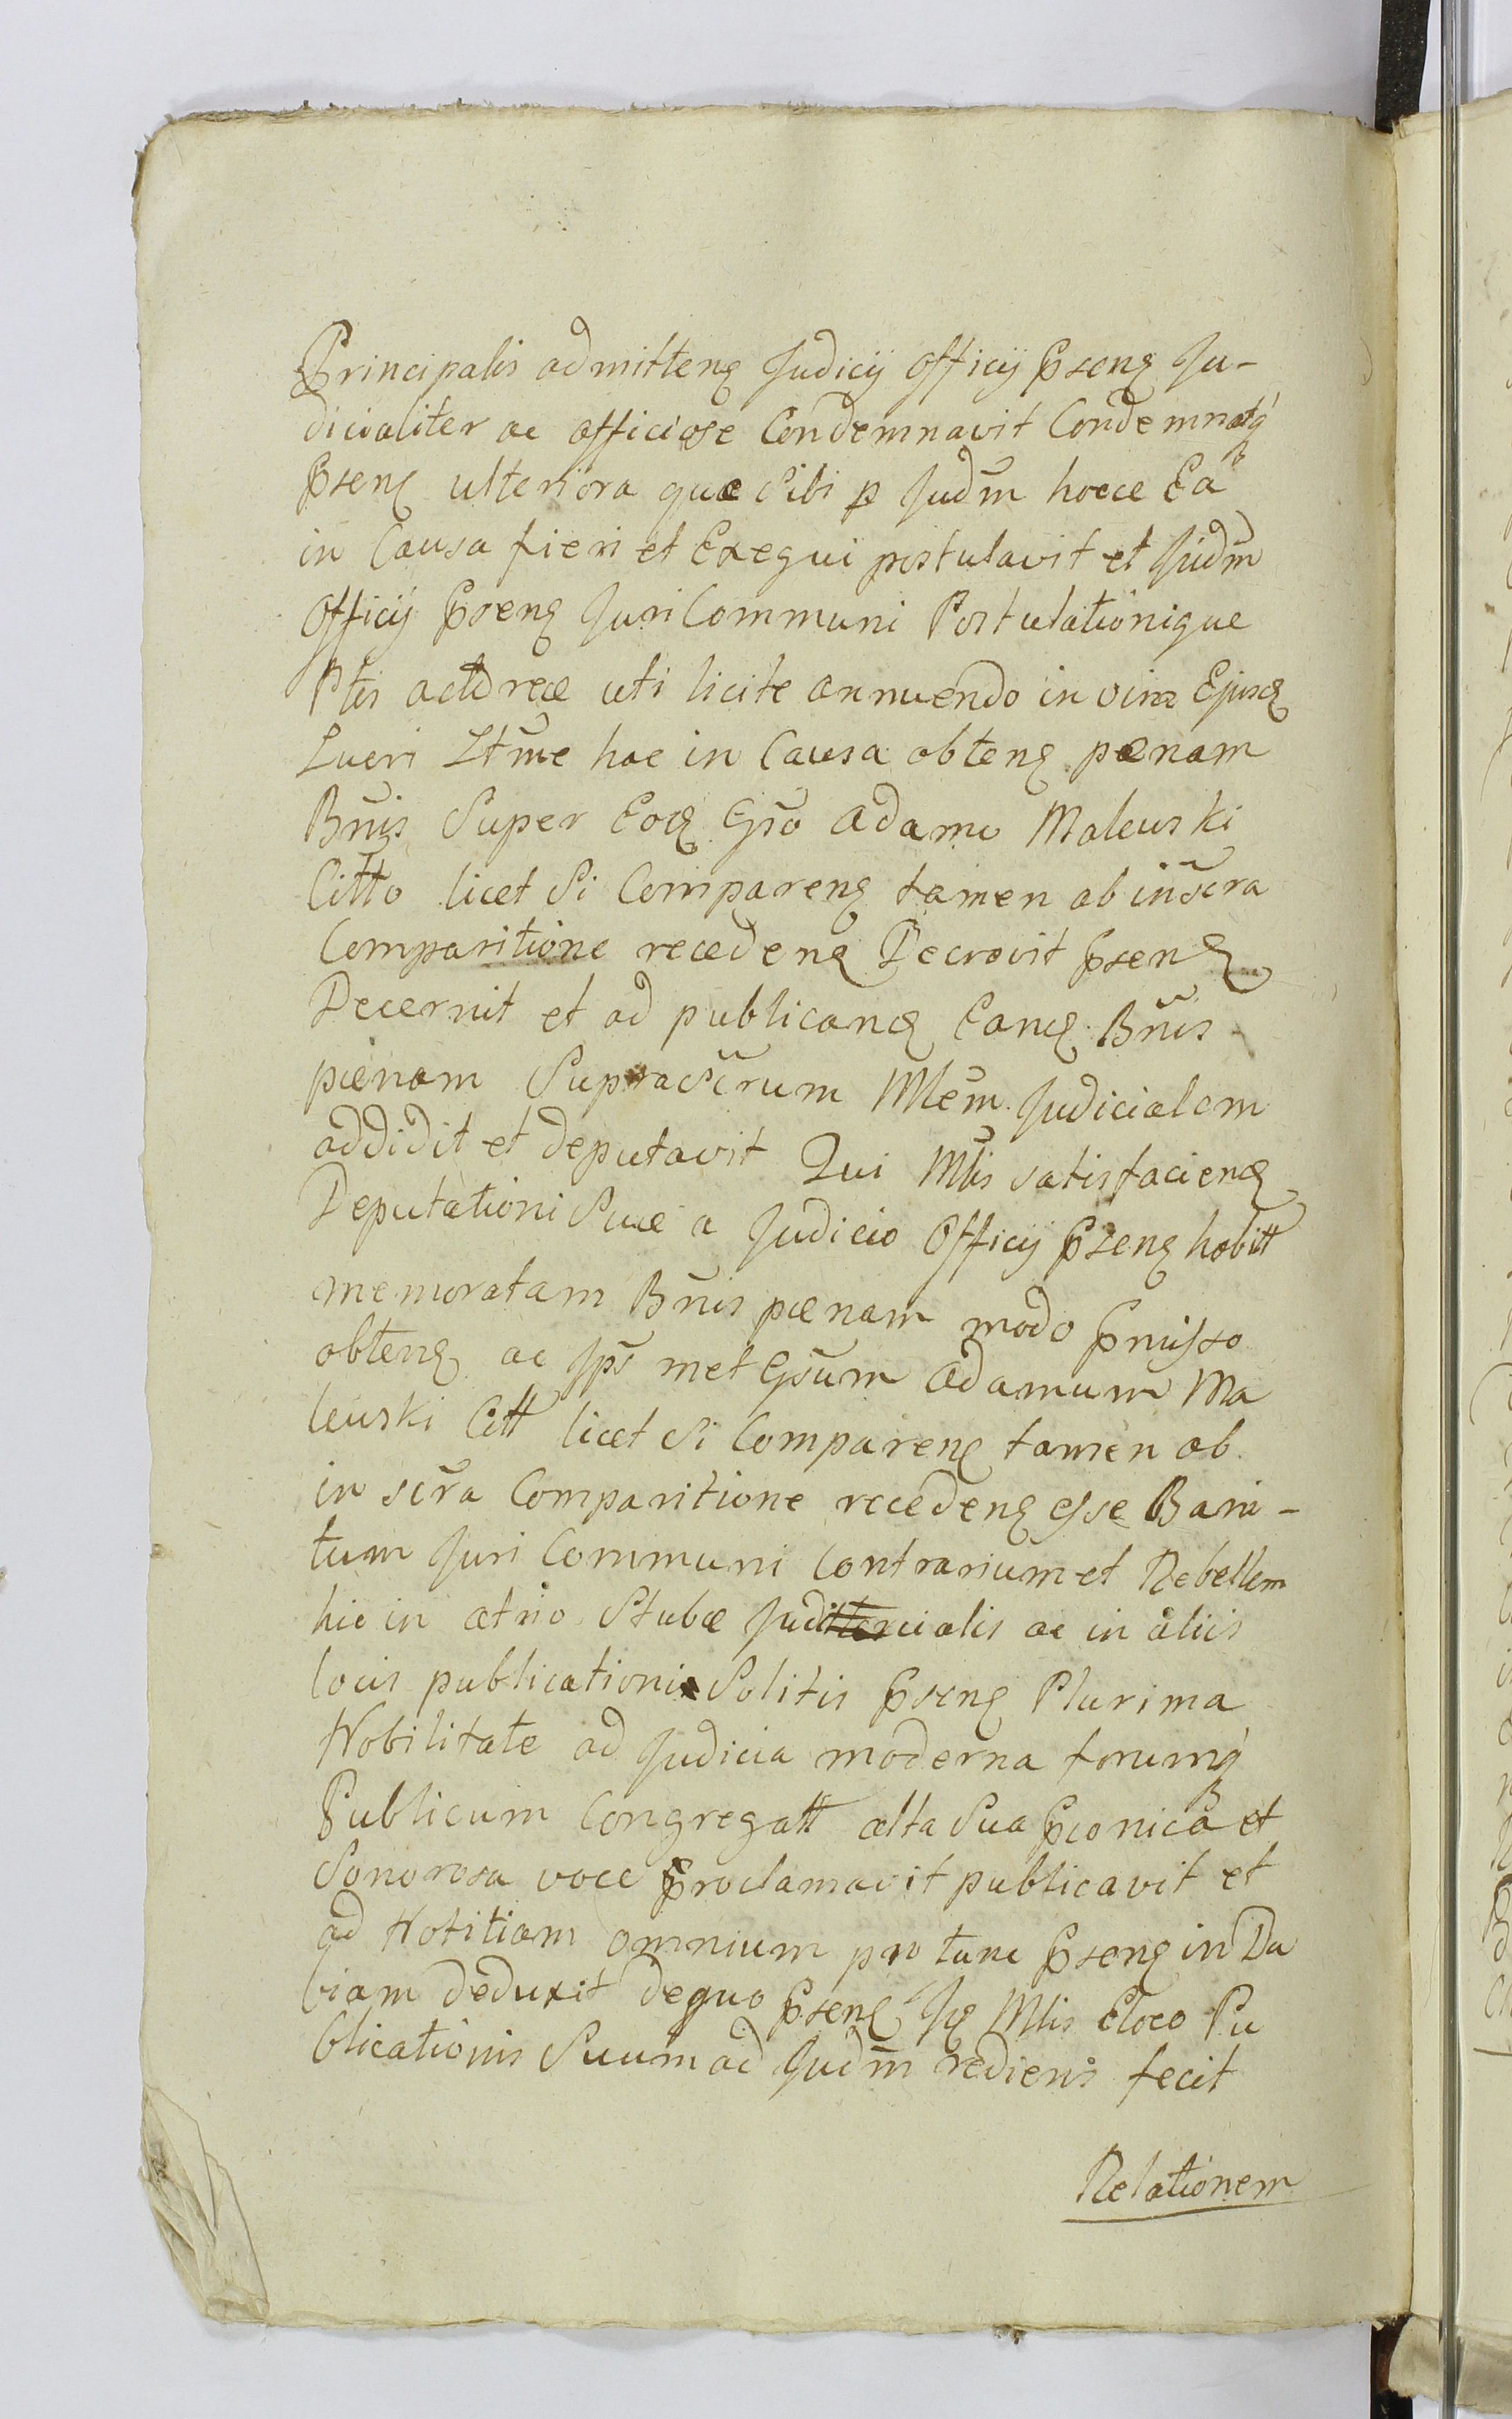 Principalis admitteng Judicij Officij Pseng Ju-
dicialiter ac officiose Condemnavit Condemnatq
Pseng ulteriora quæ Sibi p Judm̃ hocce Ea
in Causa fieri et Exequi postulavit et Judm̃
Officij Pseng Juri Communi Postulationique
Ptis actoreæ uti licite annuendo in vim Ejusg
Lucri Ltm̃e hac in Causa obteng pænam
Bñis Super Eog Gso Adamo Maleuski
Citto licet Si Compareng tamen ab inscra
Comparitione recedeng Decrevit Pseng
Decernit et ad publicang Eang Bñis
pænam Suprascrum Mlem Judicialem
addidit et deputavit Qui Mlis satisfacieng
Deputationi Suæ a Judicio Officij Pseng habitt
memoratam Bñis pænam modo Pmisso
obteng ac Jps met Gsum Adamum Ma
leuski Citt licet Si Compareng tamen ab
in scra Comparitione recedeng esse Bani-
tum Juri Communi Contrarium et Rebellem
hic in atrio Stubæ Judicialis ac in aliis
locis publicationi Solitis Pseng Plurima
Nobilitate ad Judicia moderna forumq
Publicum Congregatt alta Sua Pconica et
Sonorosa voce Proclamavit publicavit et
ad Notitiam omnium pro tunc Pseng in Du
biam deduxit dequo Pseng Jg Mlis Eloco Pu
blicationis Suum ad Judm̃ rediens fecit
Relationem